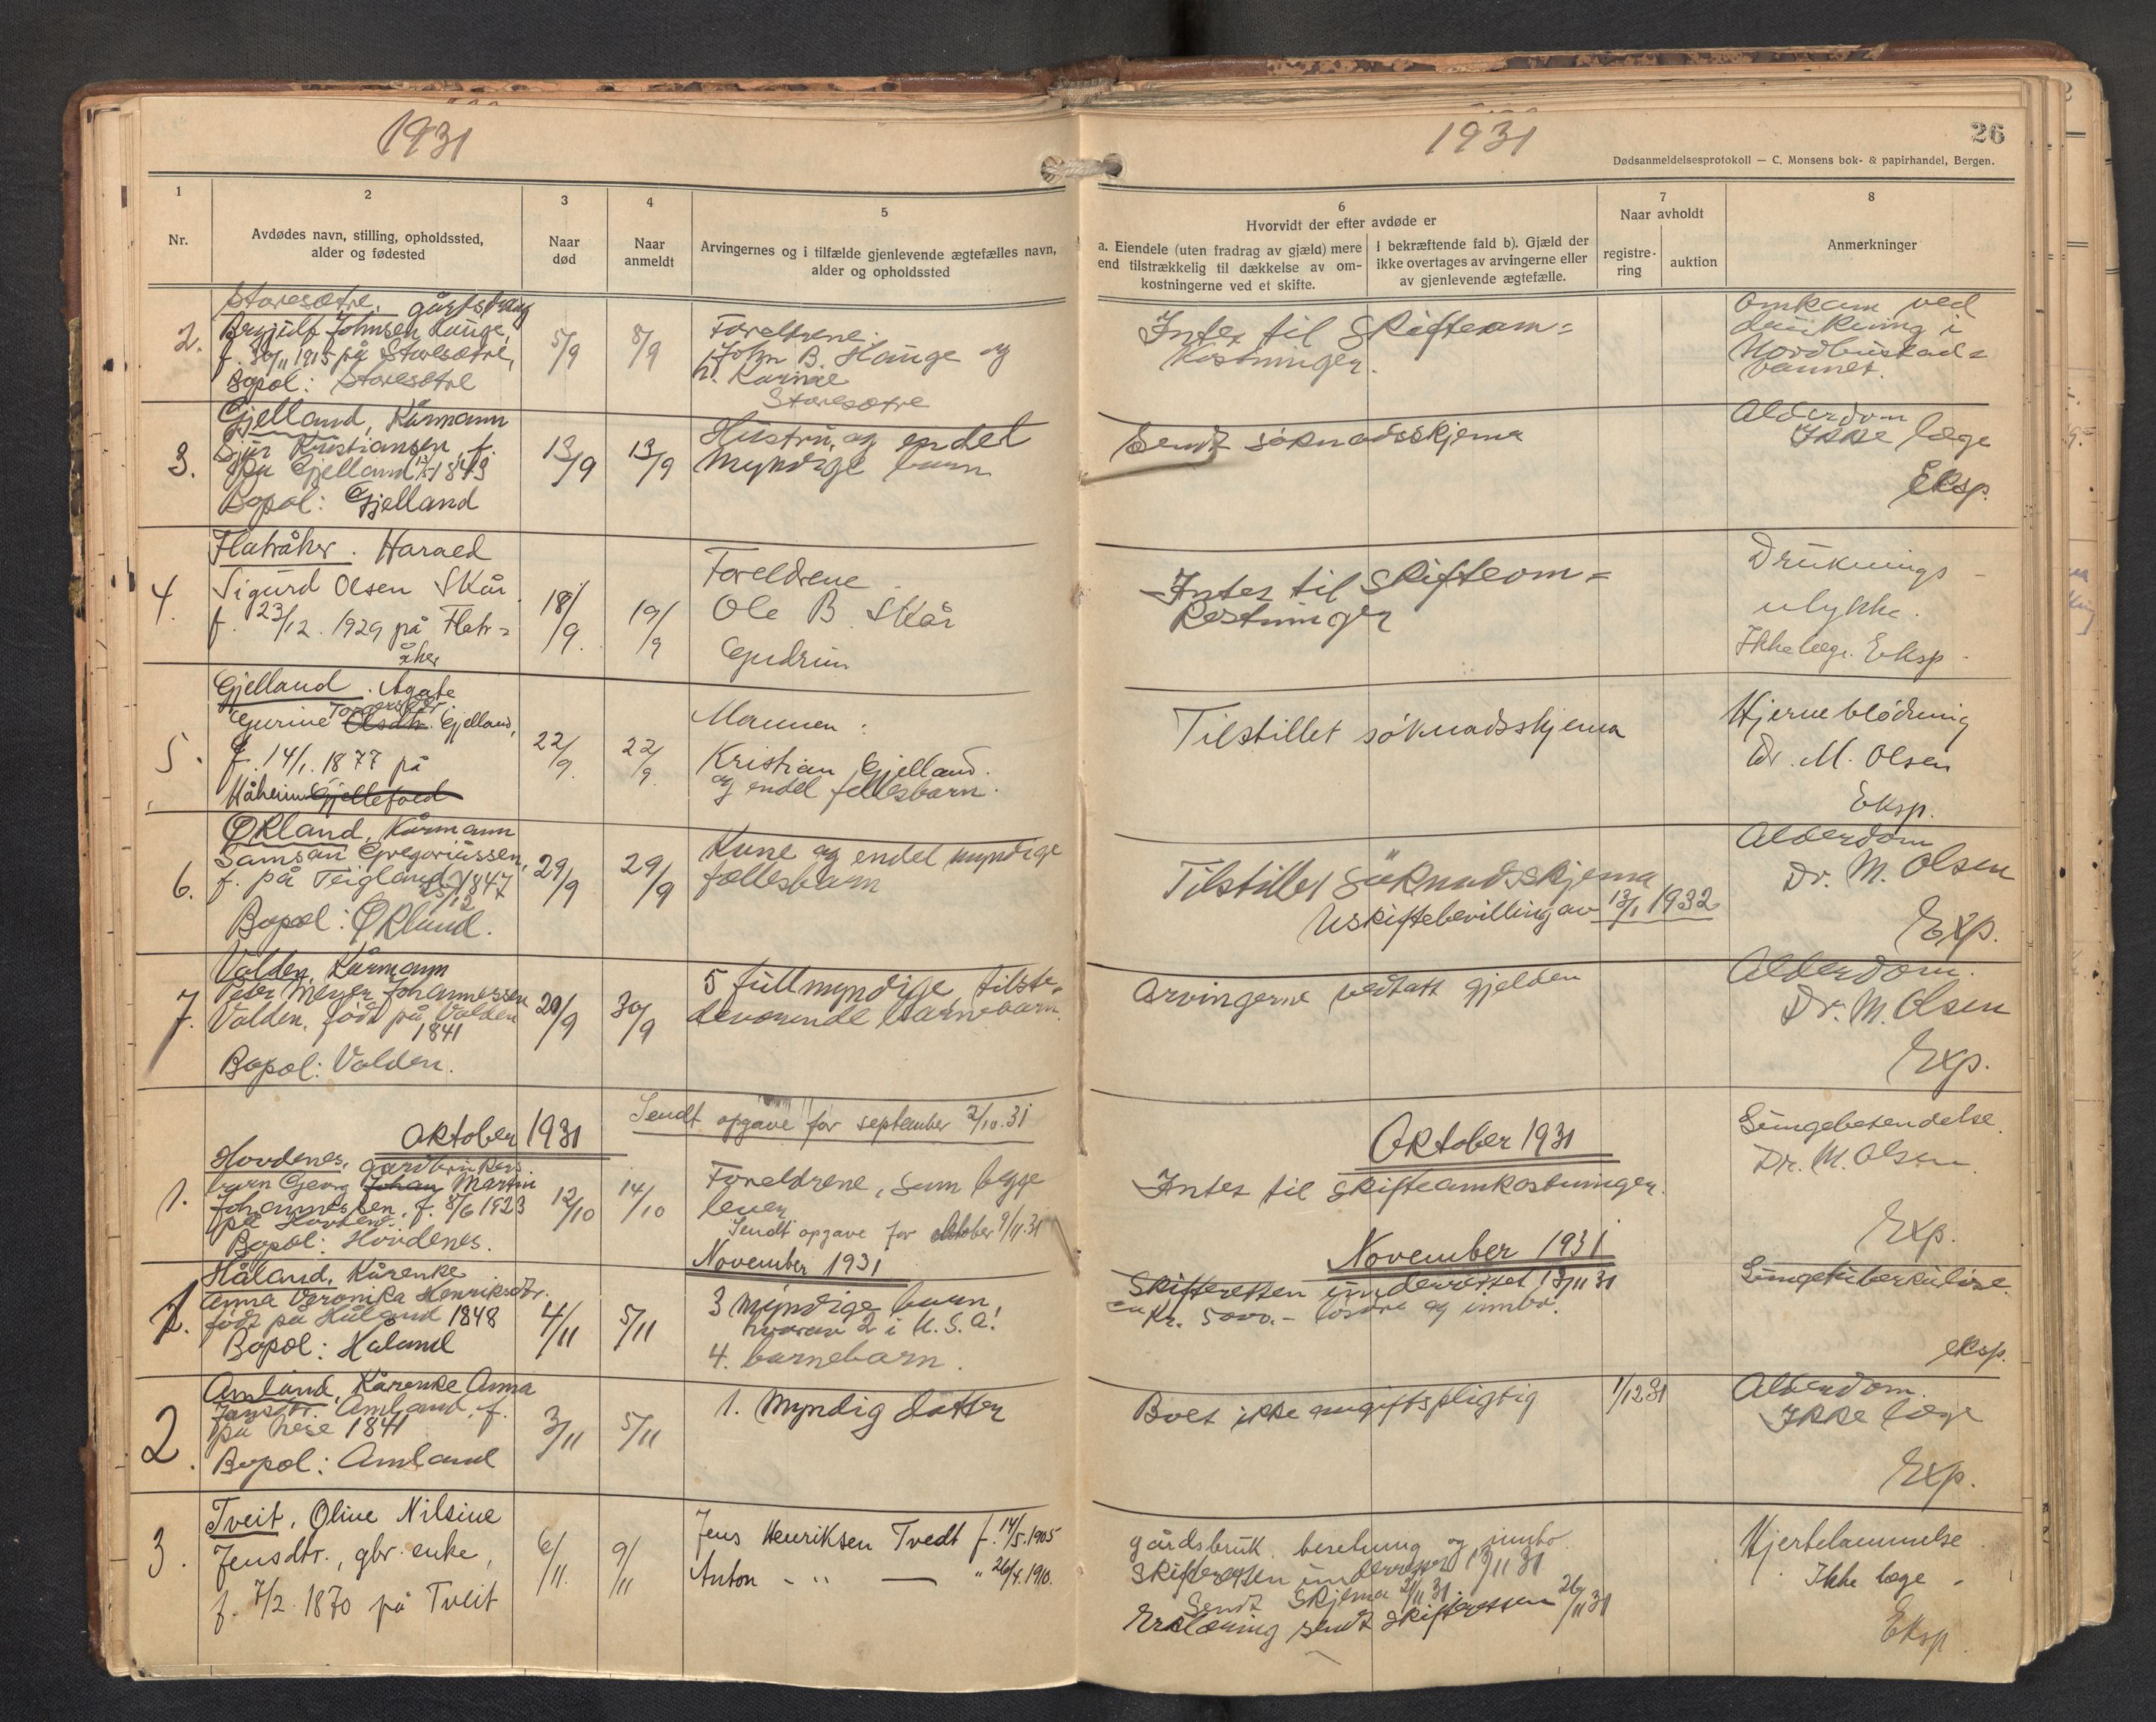 1931
1
2
3
4
5
Nr.
Avdødes navn, stilling, opholdssted,
alder og fødested
Naar
død
Naar
anmeldt
Arvingernes og i tilfælde gjenlevende ægtefælles navn,
alder og opholdssted
Storesætre, gårds
2.
Johnsen Hauge,
f. 30/11 1915 på Storesætre,
Bopæl: Storesætre
5/9
8/9
Foreldrene:
John B. Hauge og
h. Karine
Storesætre
Gjelland, Kårmann
Sjur Kristiansen, f.
3.
på Gjelland 1843
Bopæl: Gjelland
13/9
13/9
Hustru og endel
myndige barn
Flatråker. Harald
4.
Sigurd Olsen Skår
f. 23/12. 1929 på Flatr=
åker
18/9.
19/9
Foreldrene
Ole B. Skår
Gudrun
Gjelland. Agate
Gurine Olsdtr. Gjelland,
5.
f. 14/1. 1877 på
Håheim
22/9.
22/9.
Mannen:
Kristian Gjelland.
og endel fellesbarn.
Økland, Kårmann
Samson Gregoriussen,
6.
f. på Teigland 1847
Bopæl: Økland.
29/9
29/9
Kone og endel myndige
fællesbarn
Valden, Kårmann
Peder Meyer Johannessen
7.
Valden, født på Valden
1841
Bopæl: Valden.
29/9
30/9
5 fullmyndige tilste-
deværende barnebarn
Sendt opgave for september 2/10.31
Oktober 1931
Hovdenes, Gardbrukers
barn Georg Johan Martin
1.
Johannessen, f. 8/6 1923
på Hovdenes.
Bopæl: Hovdenes.
12/10
14/10
Foreldrene, som begge
lever
Sendt opgave for oktober 9/11.31
November 1931
Håland, Kårenke
Anna Veronika Henriksdtr.
1.
født på Håland 1848
Bopæl: Håland
4/11
5/11
3 myndige barn,
hvorav 2 i U.S.A.
4. barnebarn.
Amland, Kårenke Anna
Jansdtr. Amland, f.
2.
på Nese 1841
Bopæl: Amland
3/11
5/11
1. Myndig datter
Tveit, Oline Nilsine
3.
Jensdtr., gbr. enke,
f. 7/2. 1870 på Tveit
6/11.
9/11
Jens Henriksen Tvedt f. 14/5.1905
Anton - " — " 26/4.1910.
1931
26
Dødsanmeldelsesprotokoll — C. Monsens bok- & papirhandel, Bergen.
6
7
8
Hvorvidt der efter avdøde er
a. Eiendele (uten fradrag av gjæld) mere
end tilstrækkelig til dækkelse av om-
kostningerne ved et skifte.
I bekræftende fald b). Gjæld der
ikke overtages av arvingerne eller
av gjenlevende ægtefælle.
Naar avholdt
registre-
ring
auktion
Anmerkninger
Intet til skifteom=
kostninger.
Omkom ved
drukning i
vannet.
Sendt søknadsskjema
Alderdom
Ikke læge
Eksp.
Intet til skifteom=
kostninger
Druknings-
ulykke.
Ikke læge. Eksp.
Tilstillet søknadsskjema
Hjerneblødning
Dr. M. Olsen
Eksp.
Tilstillet søknadsskjema
Uskiftebevilling av 13/1 1932
Alderdom
Dr. M. Olsen
Exp.
Arvingerne vedtatt gjelden
Alderdom.
Dr. M. Olsen
Exp.
Oktober 1931
Intet til skifteomkostninger.
Lungebetendelse.
Dr. M. Olsen.
Exp.
November 1931
Skifteretten underrettet 13/11 31
Kr. 5000.- løsøre og innbo.
Lungetuberkulose.
eksp.
Boet ikke avgiftspligtig
1/12 31
Alderdom.
Ikke læge
Exp.
gårdsbruk. besetning og innbo.
Skifteretten underrettet 13/11 31
Sendt skjema 21/11 31
Erklæring sendt skifteretten 26/11 31
Hjertelammelse.
Ikke læge.
Eksp.